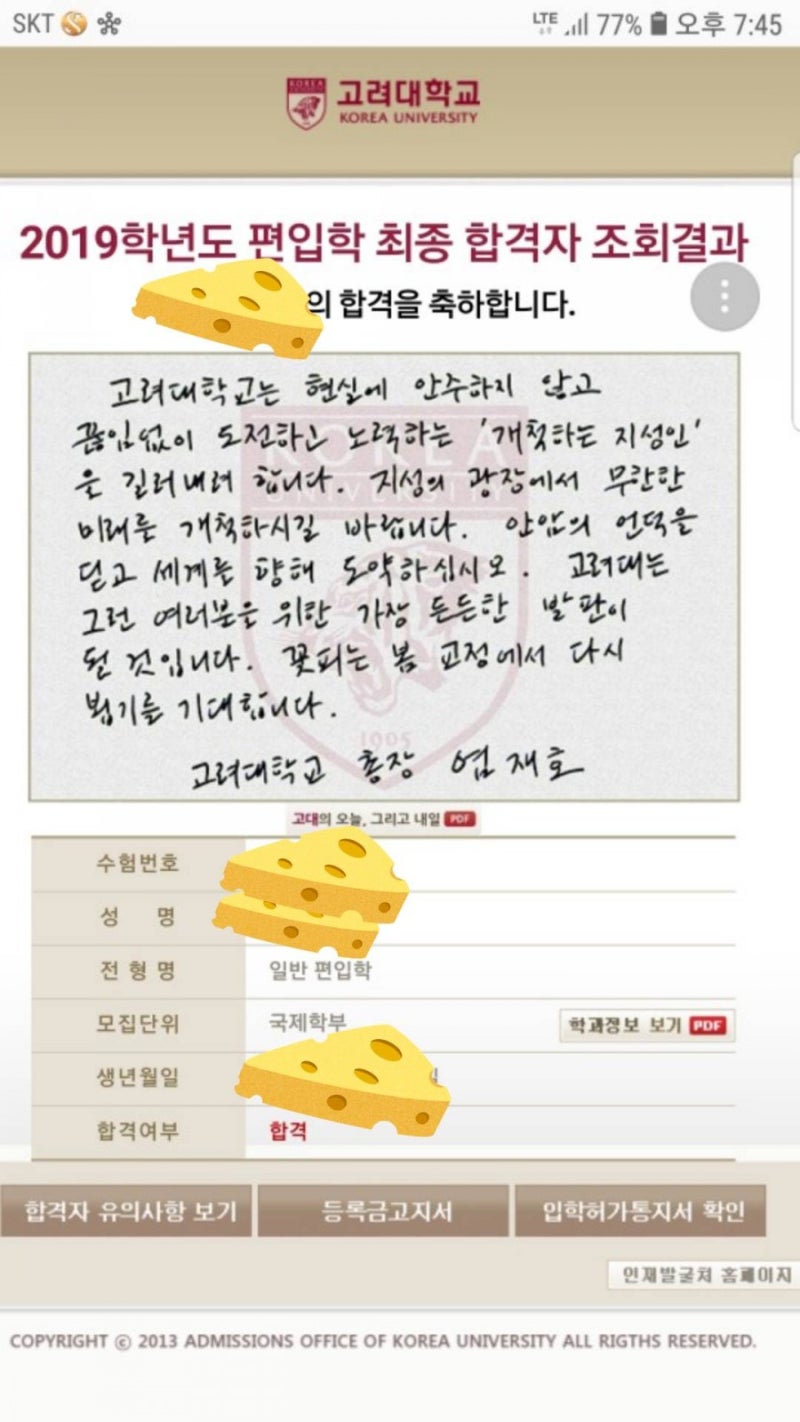 SKT LTE 77% 오후 7:45
KOREA
고려대학교
KOREA UNIVERSITY
2019학년도 편입학 최종 합격자 조회결과
의 합격을 축하합니다.
고려대학교는 현실에 안주하지 않고
끊임없이 도전하고 노력하는 '개척하는 지성인'
을 길러내려 합니다. 지성의 광장에서 무한한
미래를 개척하시길 바랍니다. 안암의 언덕을
딛고 세계를 향해 도약하십시오. 고려대는
그런 여러분을 위한 가장 든든한 발판이
될 것입니다. 꽃피는 봄 교정에서 다시
뵙기를 기대합니다.
고려대학교 총장 염재호
KOREA
UNIVERSITY
1905
고대의 오늘, 그리고 내일 PDF
수험번호
성 명
전 형 명 일반 편입학
모집단위 국제학부 학과정보 보기 PDF
생년월일
합격여부 합격
합격자 유의사항 보기 등록금고지서 입학허가통지서 확인
인재발굴처 홈페이지
COPYRIGHT ⓒ 2013 ADMISSIONS OFFICE OF KOREA UNIVERSITY ALL RIGTHS RESERVED.